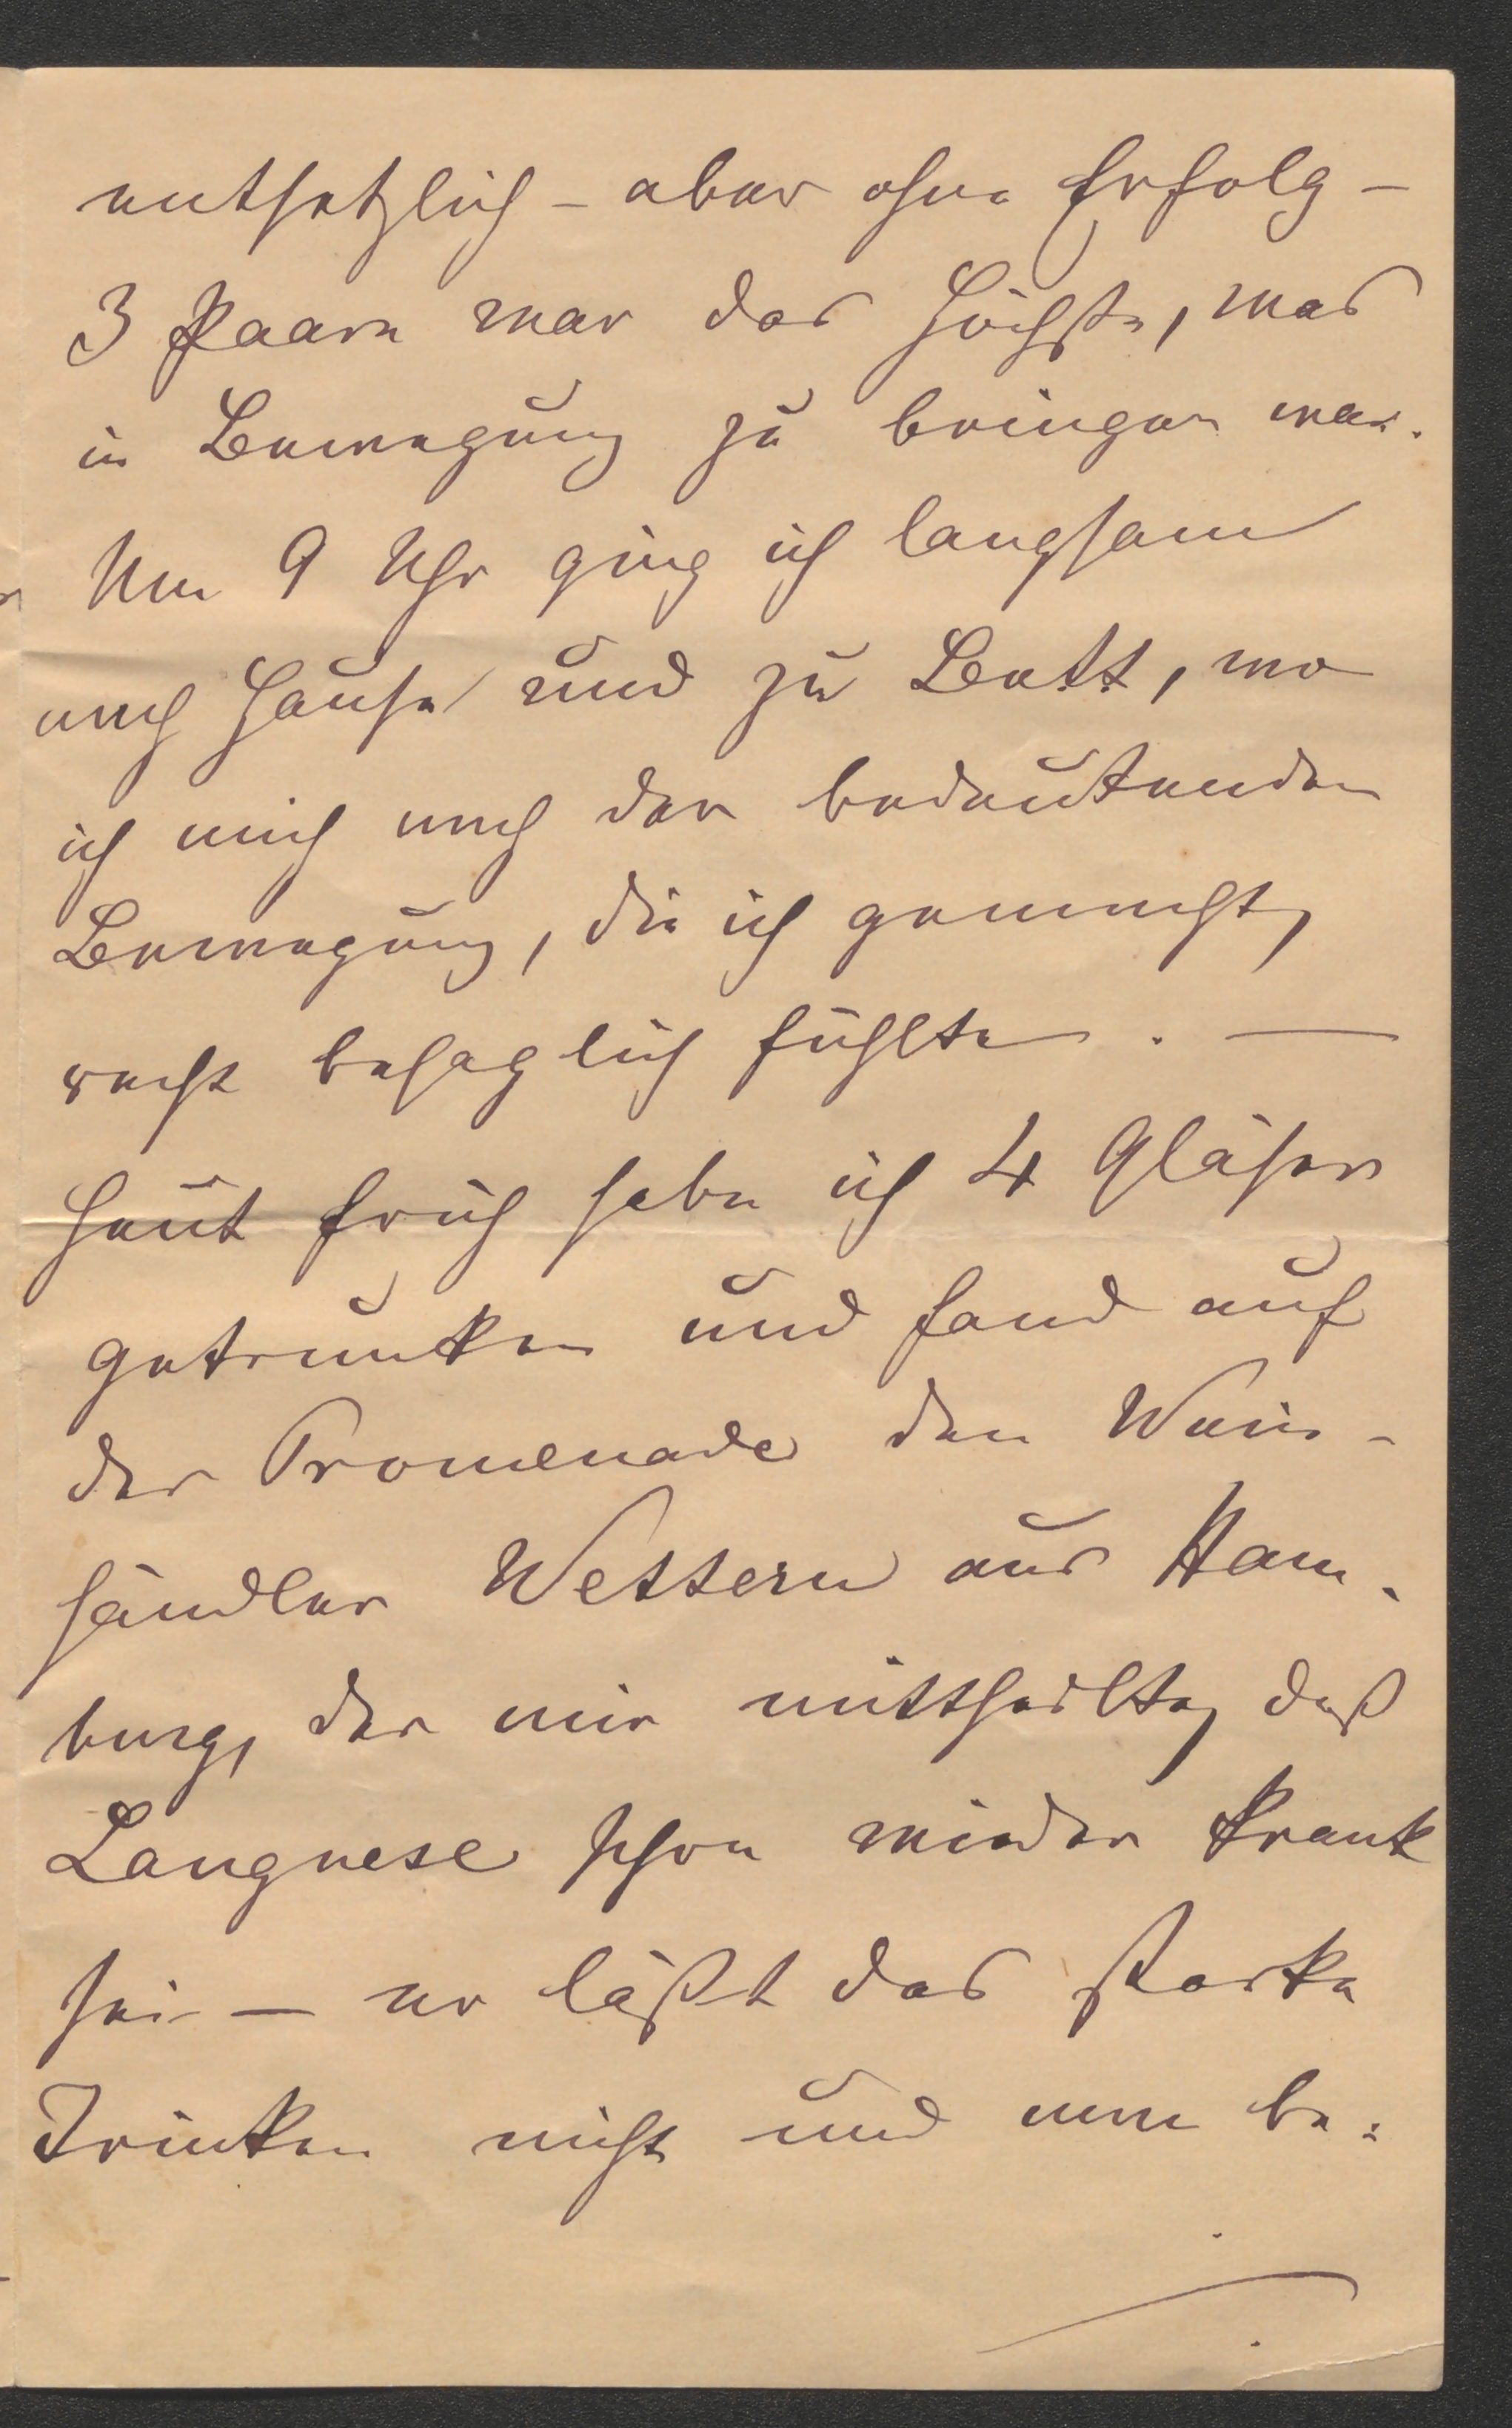 entsetzlich – aber ohne Erfolg –
3 Paare war das Höchste, was
in Bewegung zu bringen war.
Um 9 Uhr ging ich langsam
nach Hause und zu Bett, wo
ich mich nach der bedeutenden
Bewegung, die ich gemacht,
recht behaglich fühlte. —
Heut früh habe ich 4 Gläser
getrunken und fand auf
der Promenade den Wein-
händler Wettern aus Ham-
burg, der mir mittheilte, daß
Langnese schon wieder krank
sei – er läßt das starke
Trinken nicht und nun be: